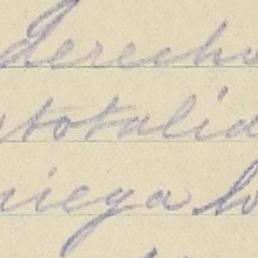 derecho
totalid
niega lo